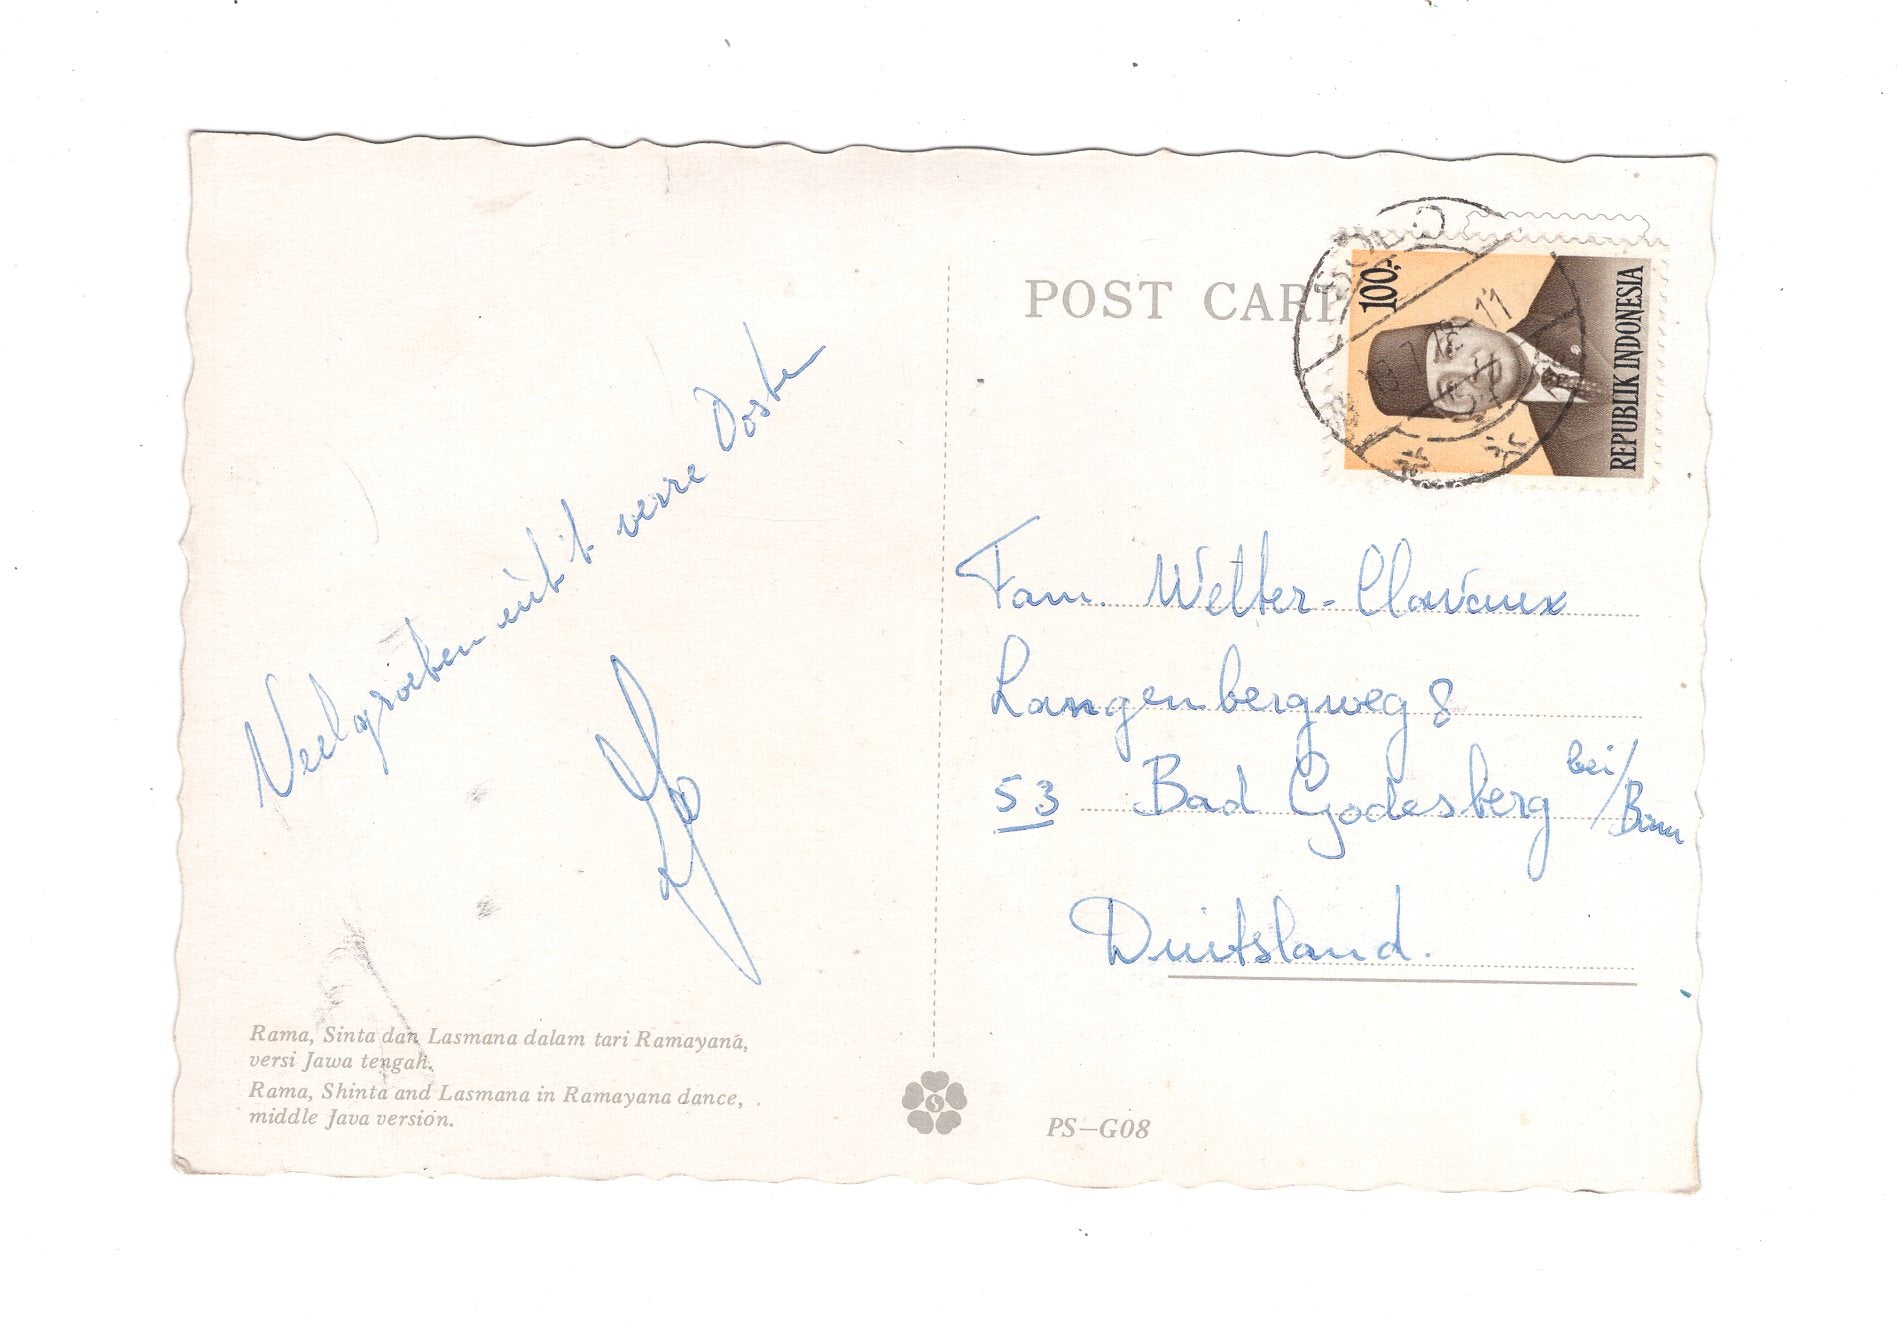 POST CAR
100.-
REPUBLIK INDONESIA
SOLO
11
Veel groeten uit 't verre Oosten
Fam. Welter-Clavaux
Langenbergweg 8
53 Bad Godesberg bei/Bonn
Duitsland.
Rama, Sinta dan Lasmana dalam tari Ramayana,
versi Jawa tengah.
Rama, Shinta and Lasmana in Ramayana dance,
middle Java version.
PS-G08